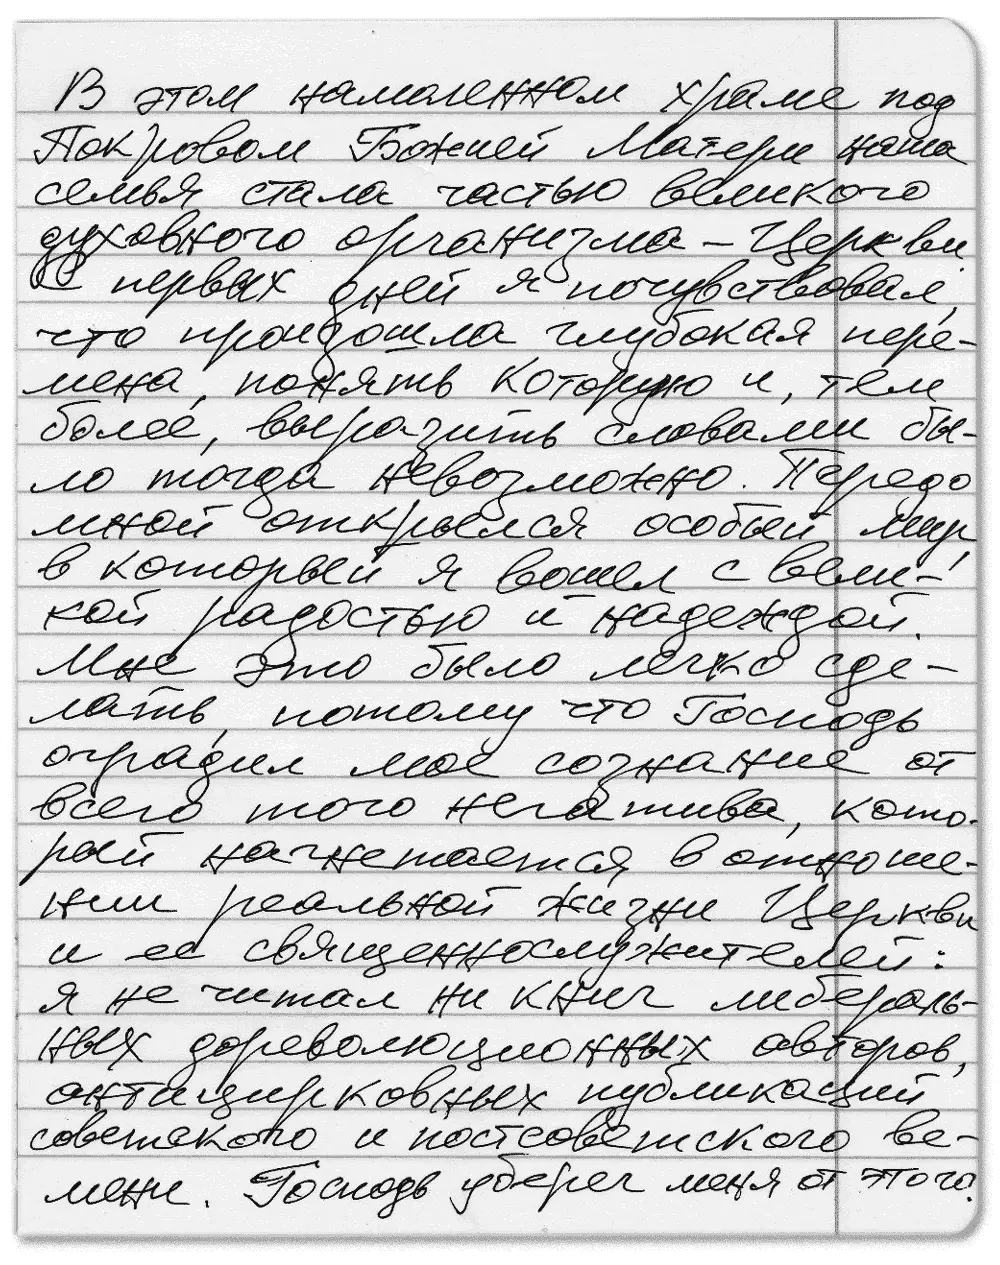 В этом намоленном храме под
Покровом Божией Матери наша
семья стала частью великого
духовного организма – Церкви.
С первых дней я почувствовал,
что произошла глубокая пере-
мена, понять которую и, тем
более, выразить словами бы-
ло тогда невозможно. Передо
мной открылся особый мир,
в который я вошел с вели-
кой радостью и надеждой.
Мне это было легко сде-
лать, потому что Господь
оградил мое сознание от
всего того негатива, кото-
рый нагнетается в отноше-
нии реальной жизни Церкви
и ее священнослужителей:
я не читал ни книг либераль-
ных дореволюционных авторов,
антицерковных публикаций
советского и постсоветского ве-
мени. Господь уберег меня от этого.